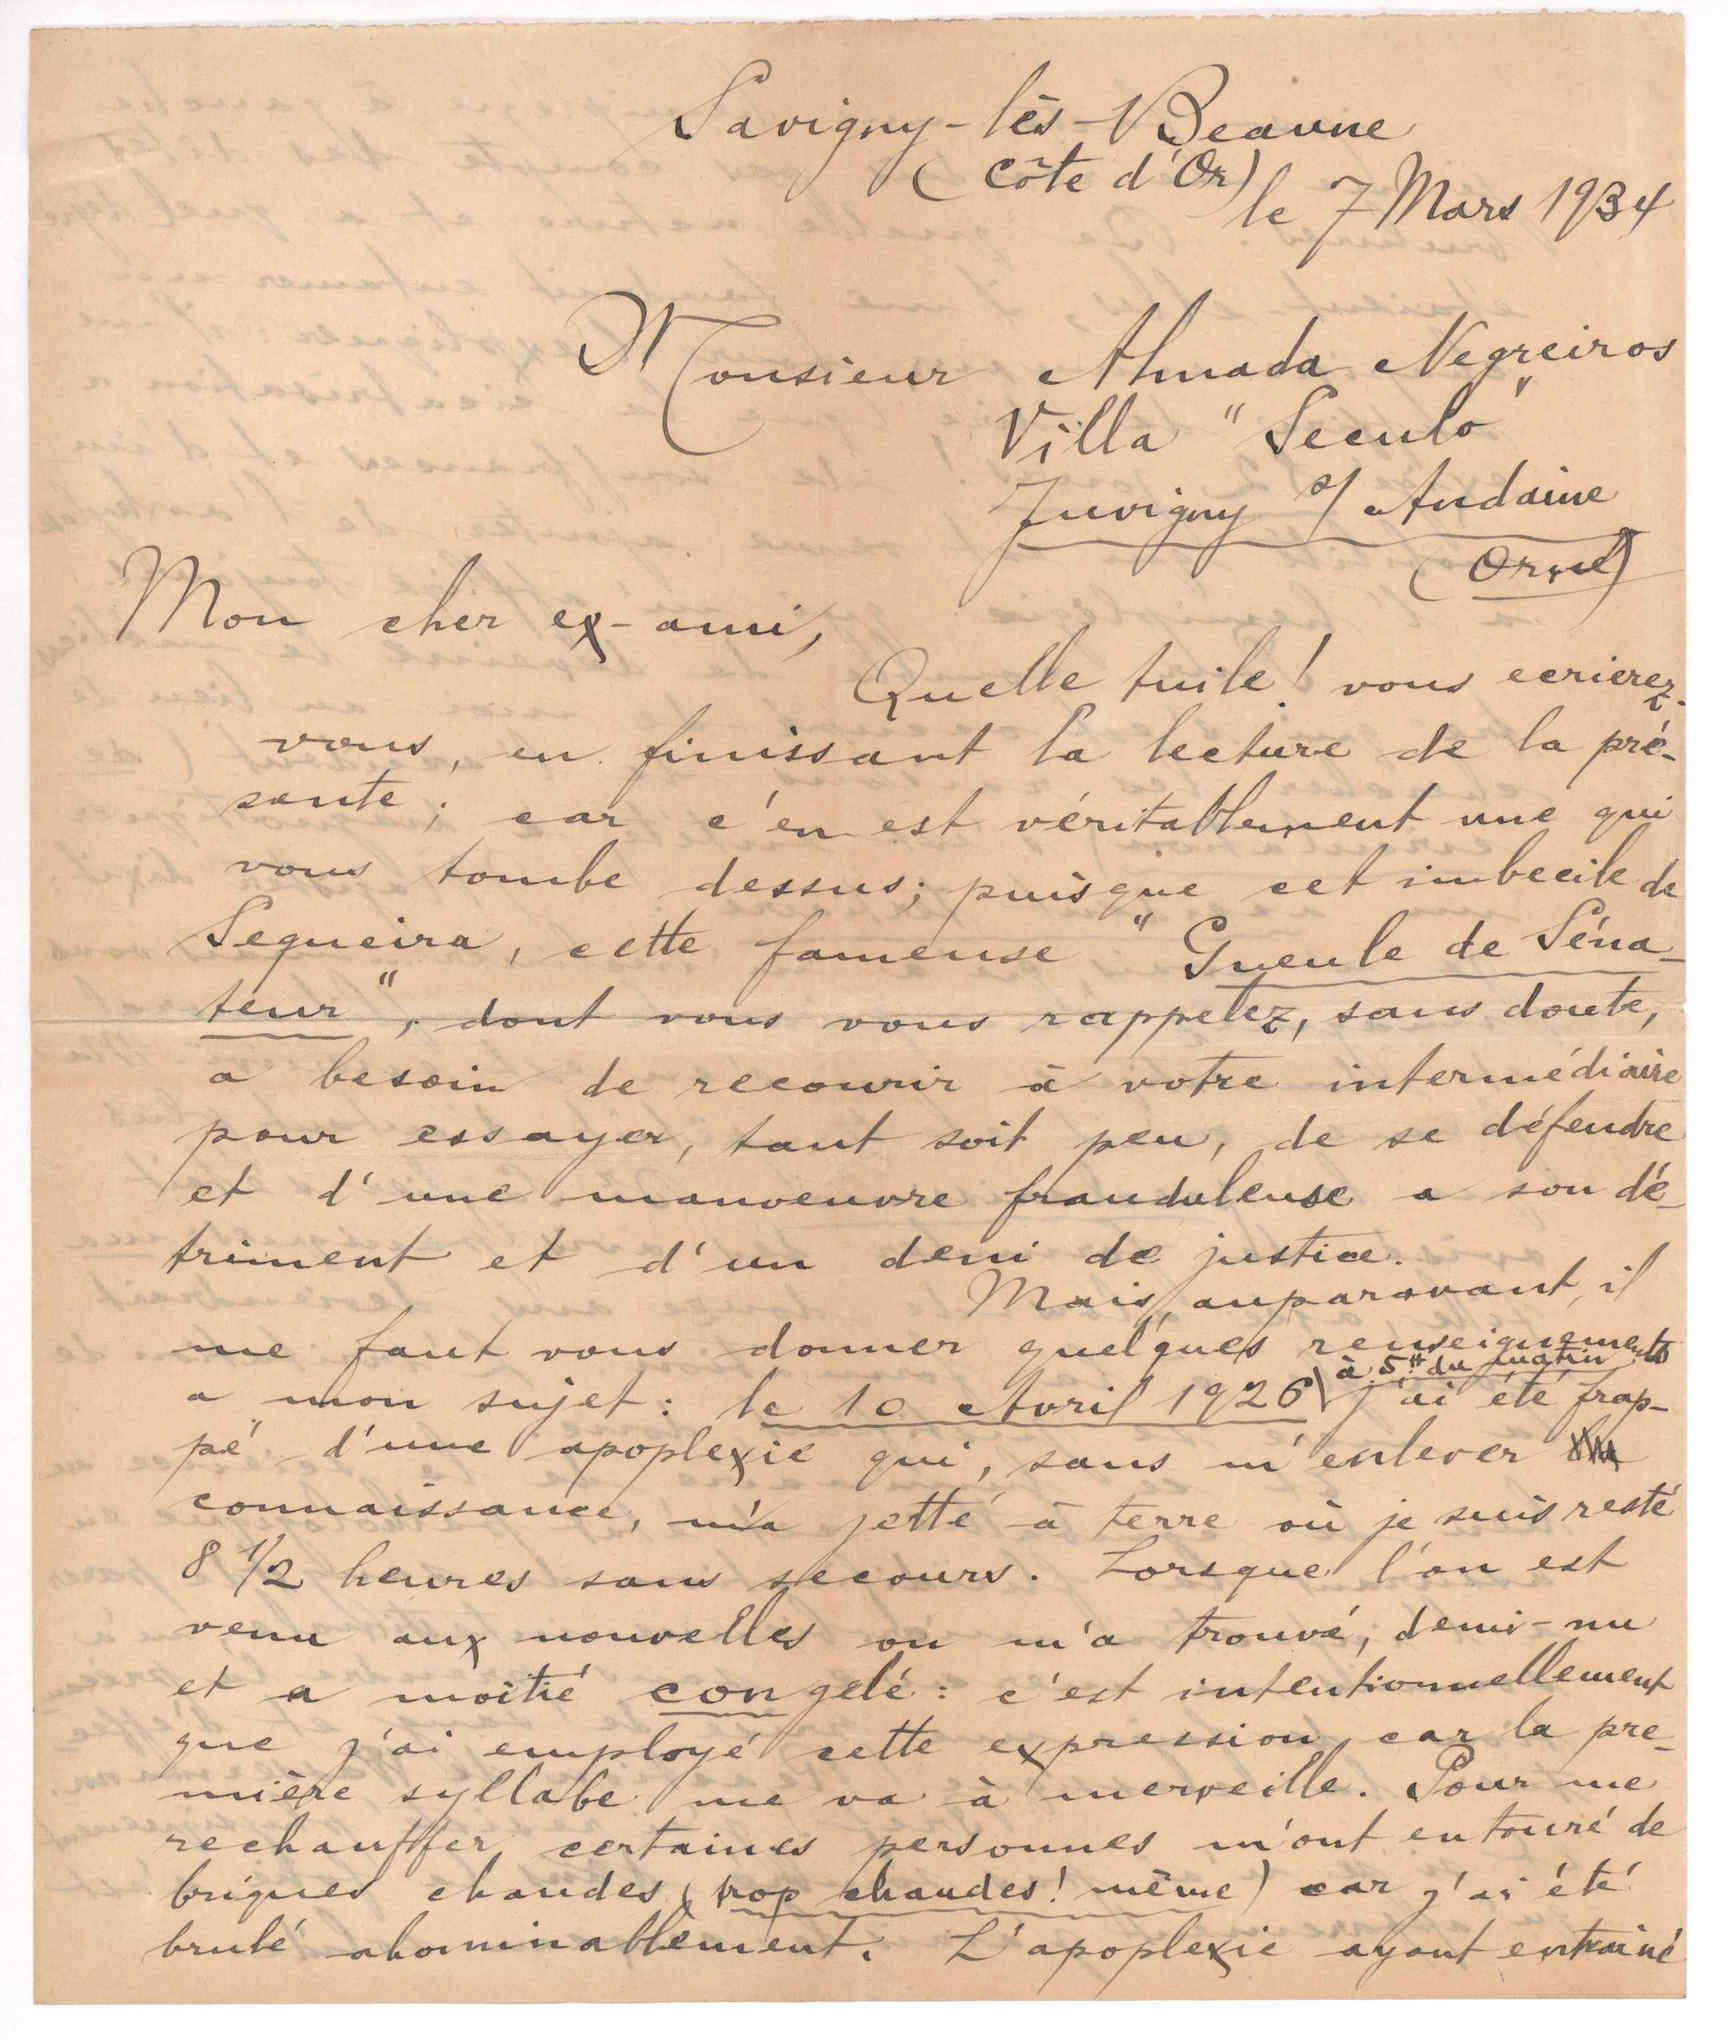 Savigny-lès-Beaune
(Côte d'Or)
le 7 Mars 1934
Monsieur Almada Negreiros
Villa "Seculo"
Juvigny s/ Andaine
(Orne)
Mon cher ex-ami,
Quelle tuile! vous ecrierez-
vous, en finissant la lecture de la pré-
sente; car c'en est véritablement une qui
vous tombe dessus; puisque cet imbecile de
Sequeira, cette fameuse "Gueule de Séna-
teur", dont vous vous rappelez, sans doute,
a besoin de recourir à votre intermédiaire
pour essayer, tant soit peu, de se défendre
et d'une manoeuvre frauduleuse a son dé-
triment et d'un deni de justice.
Mais, auparavant, il
me faut vous donner quelques renseignements
a mon sujet: le 10 Avril 1926 à 5H du matin j'ai été frap-
pé d'une apoplexie qui, sans m'enlever
connaissance, m'a jetté à terre où je suis resté
8 1/2 heures sans secours. Lorsque l'on est
venu aux nouvelles on m'a trouvé, demi-nu
et a moitié congelé: c'est intentionnellement
que j'ai employé cette expression, car la pre-
mière syllabe me va à merveille. Pour me
rechauffer, certaines personnes m'ont entouré de
briques chaudes, (trop chaudes! même) car j'ai été
brulé abominablement. L'apoplexie ayant entrainé